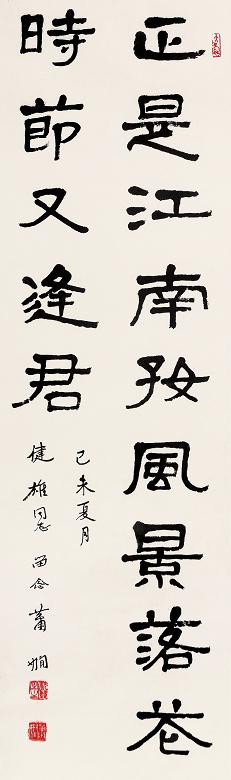 正是江南好风景落花
時節又逢君
己未夏月
健雄同志留念萧娴